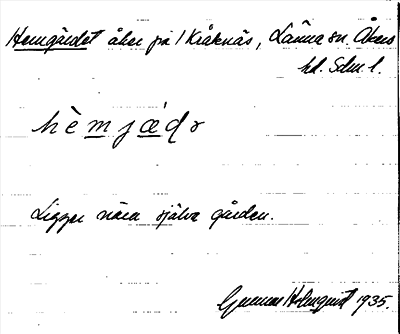 Hemgärdet åker på 1 Kråknäs, Länna sn. Åkers
hd. Sdm. l.
hèmjæ̀dɚ
Ligger nära själva gården.
Gunnar Holmquist 1935.